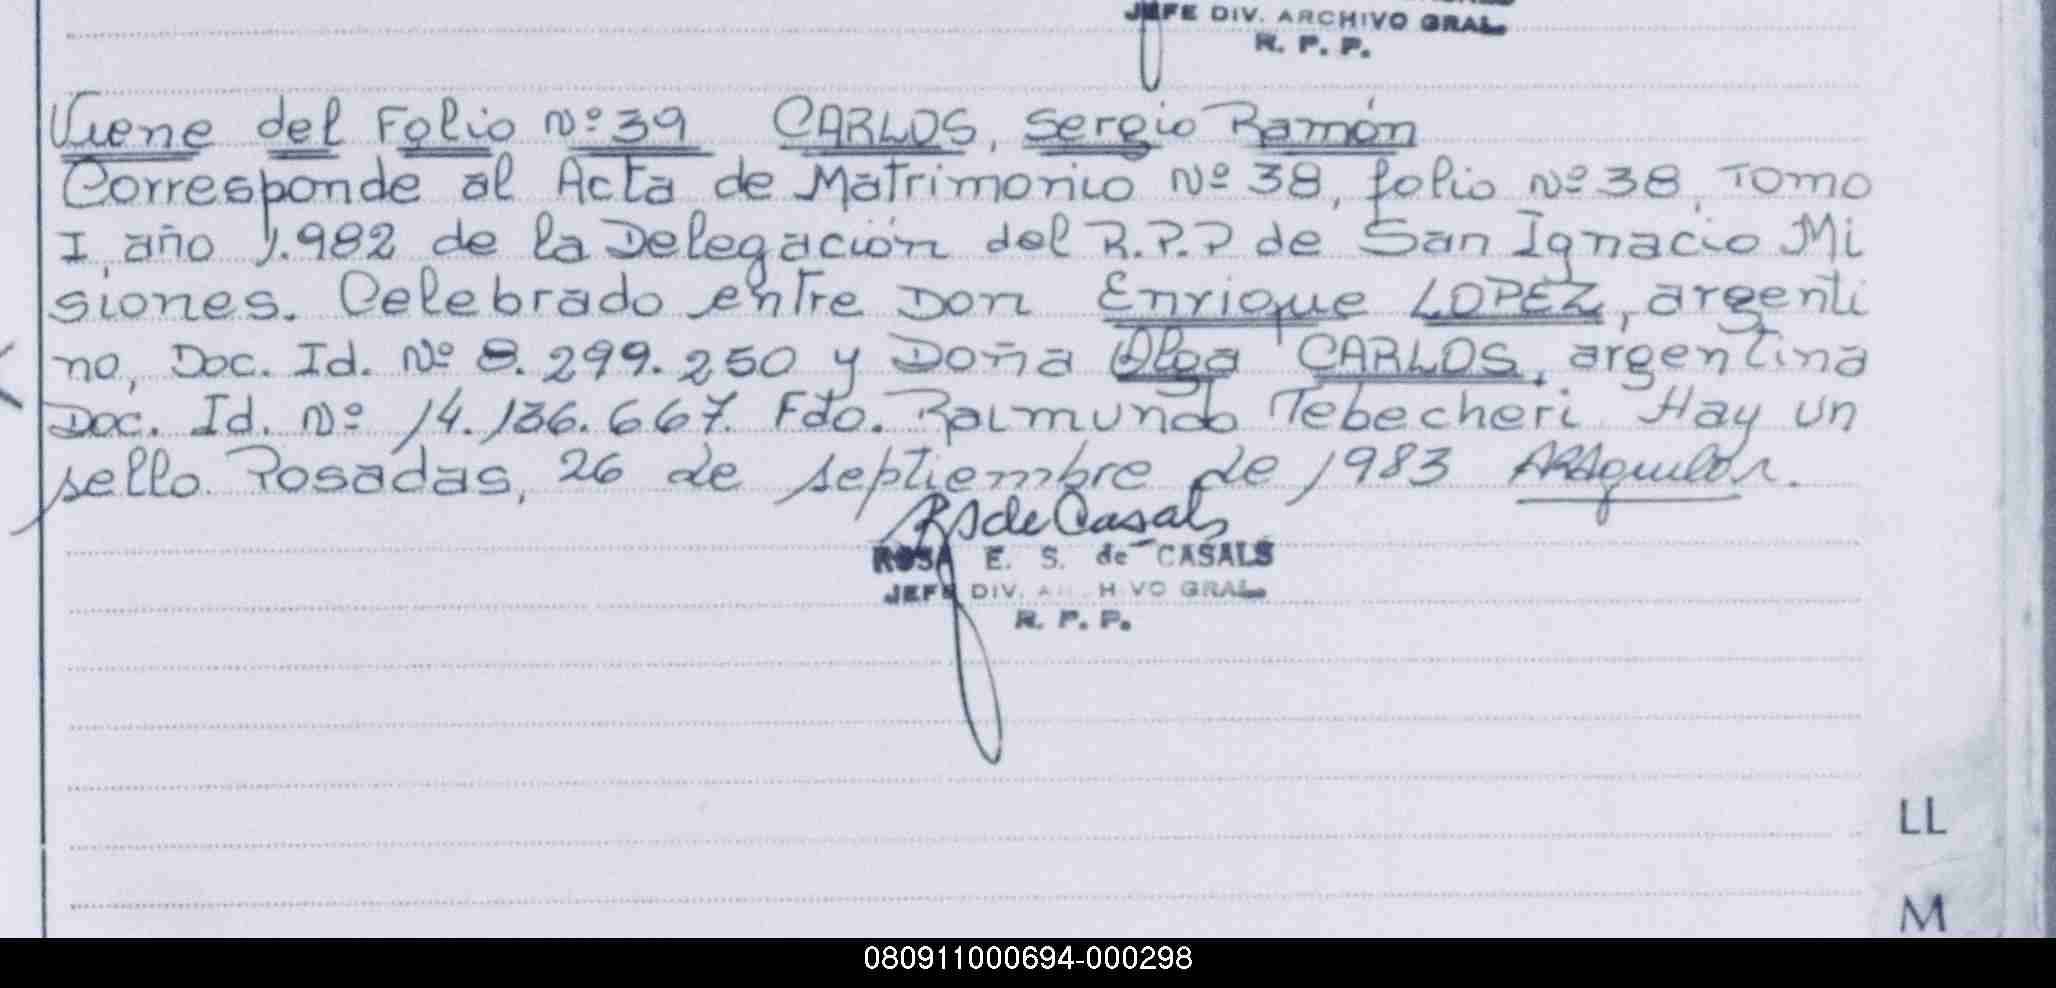 JEFE DIV. ARCHIVO GRAL.
R. P. P.
Viene del Folio Nº 39 CARLOS, Sergio Ramón
Corresponde al Acta de Matrimonio Nº 38, folio Nº 38, Tomo
I, año 1.982 de la Delegación del R.P.P de San Ignacio Mi
siones. Celebrado entre Don Enrique LOPEZ, argenti
no, Doc. Id. Nº 8.299.250 y Doña Olga CARLOS, argentina
Doc. Id. Nº 14.136.667. Fdo. Raimundo Tebecheri. Hay un
sello. Posadas, 26 de septiembre de 1983 ARAguilar.
RSdeCasals
ROSA E. S. de CASALS
JEFE DIV. ARCHIVO GRAL.
R. P. P.
LL
M
080911000694-000298